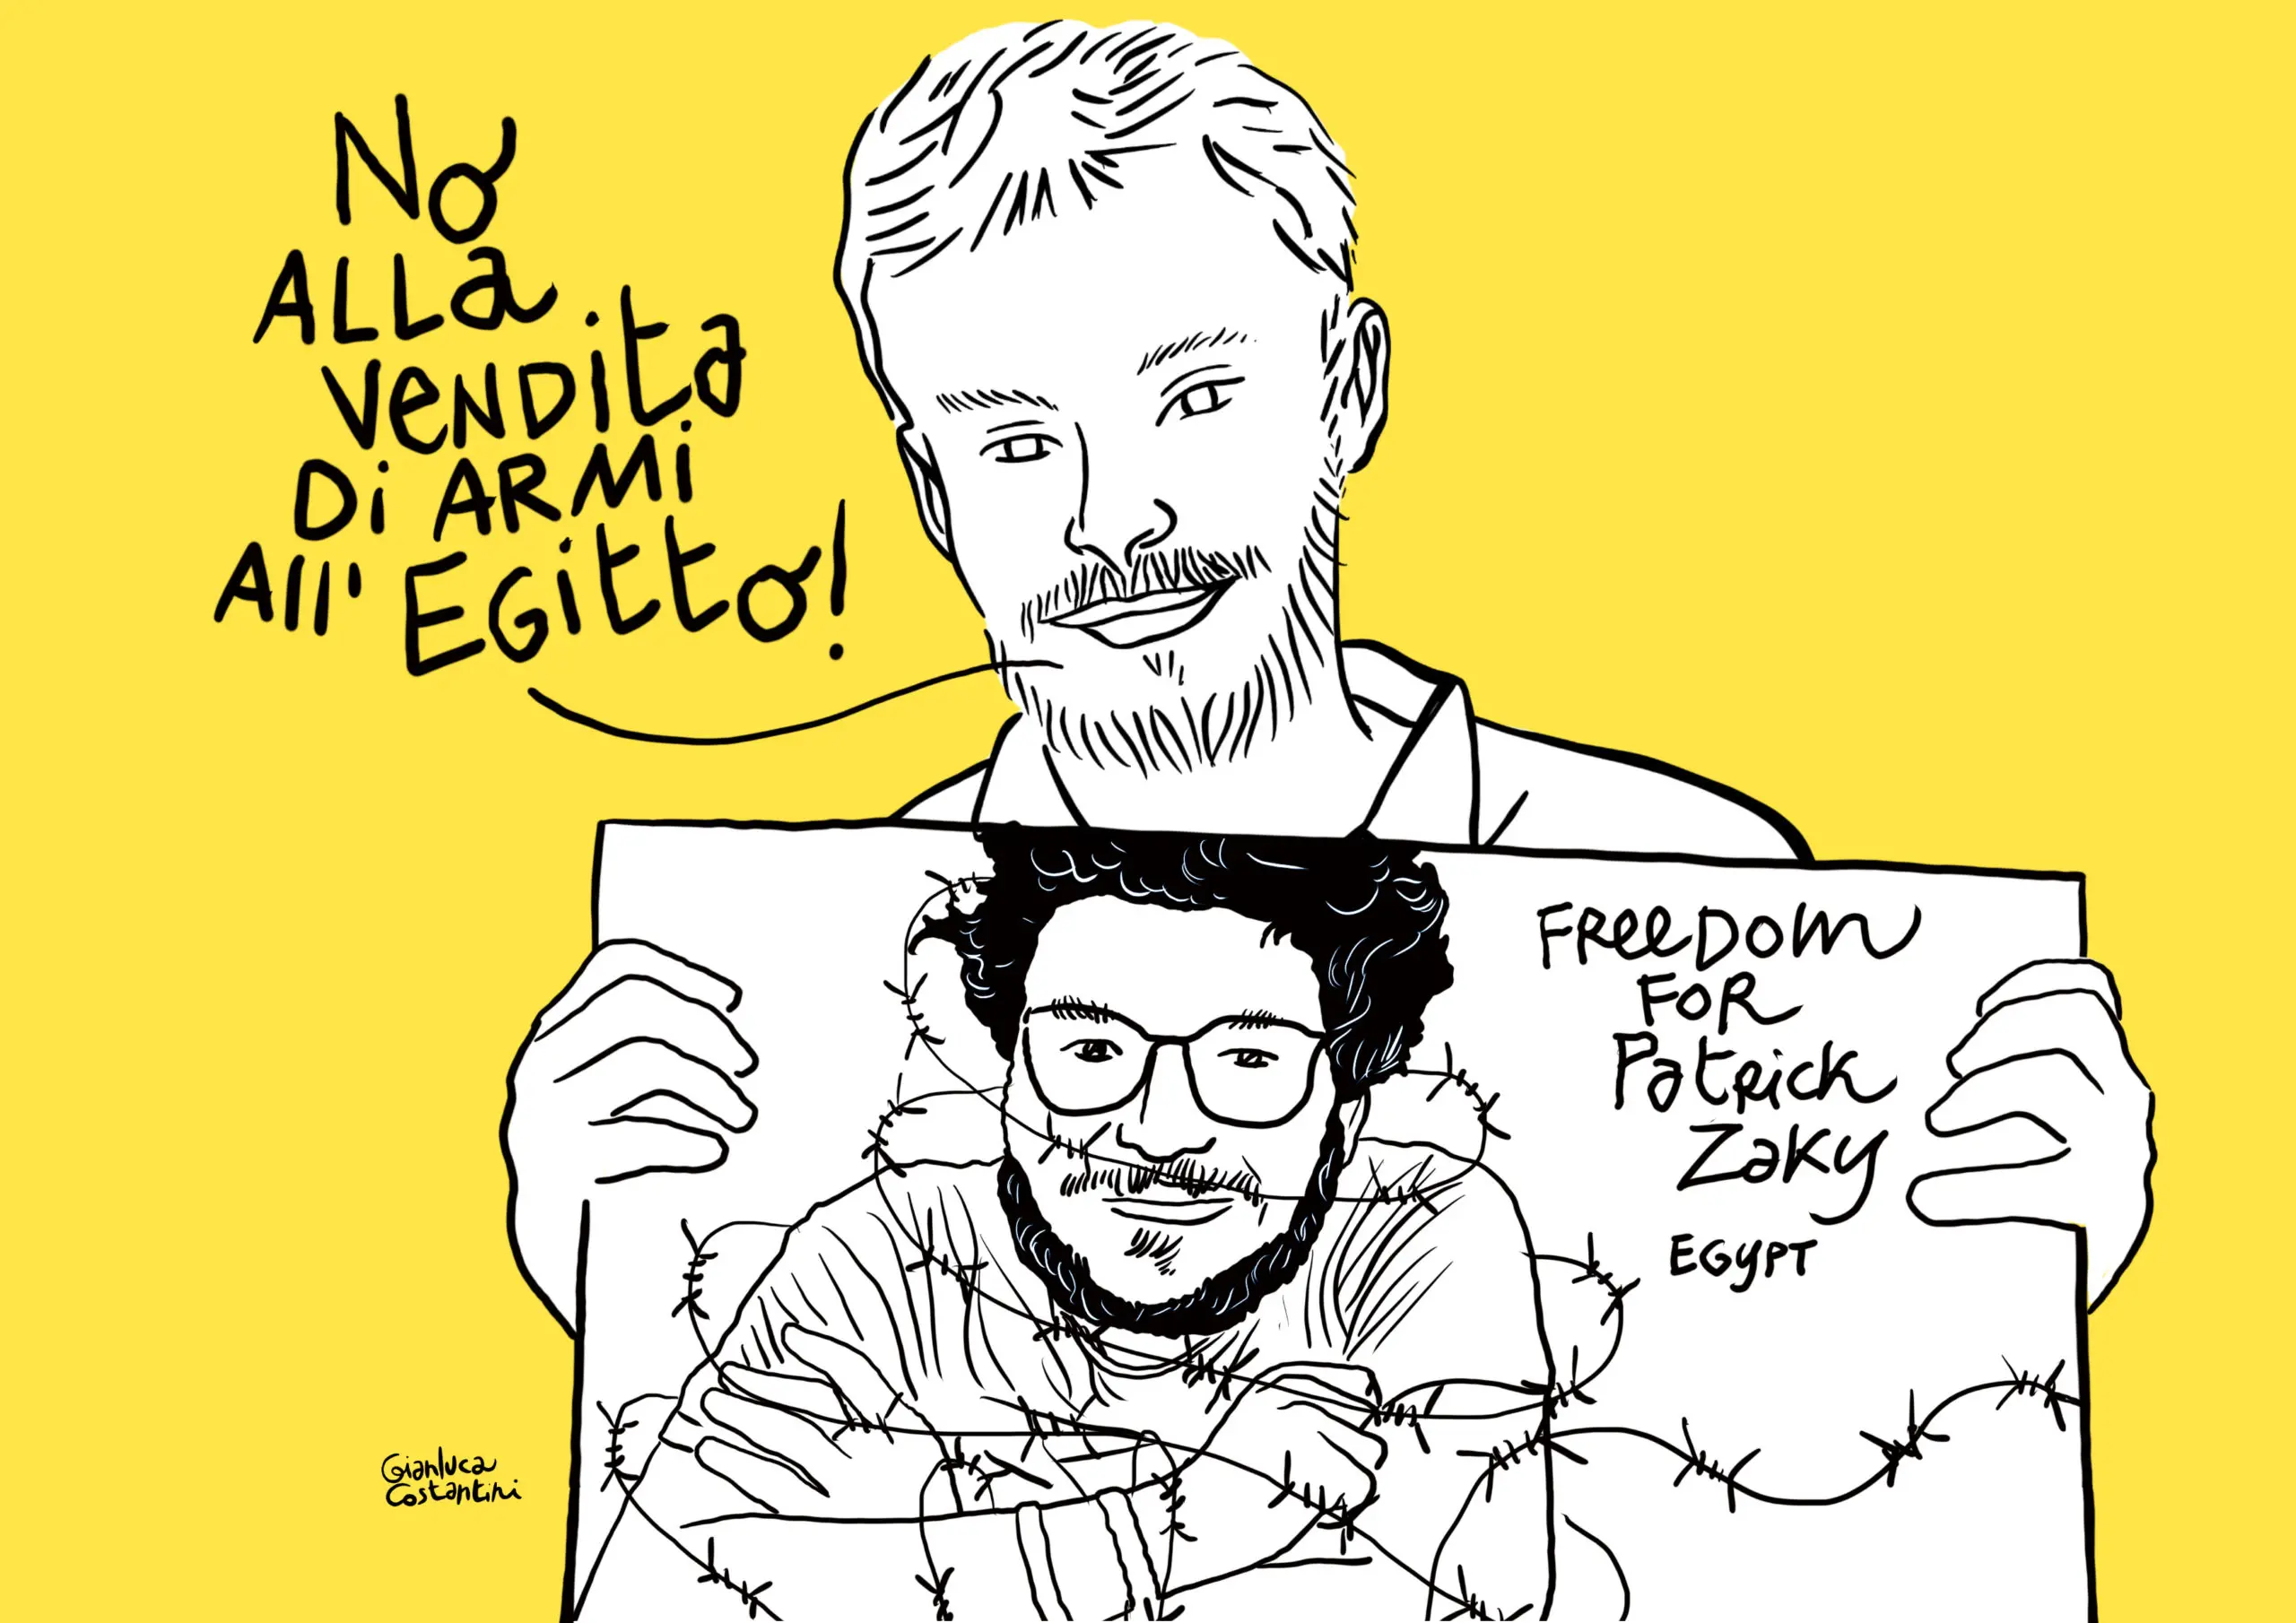 No
ALLa
VeNDita
Di ARMi
All' EGitto!
FReeDOM
FOR
Patrick
Zaky
EGYPT
Gianluca
Costantini